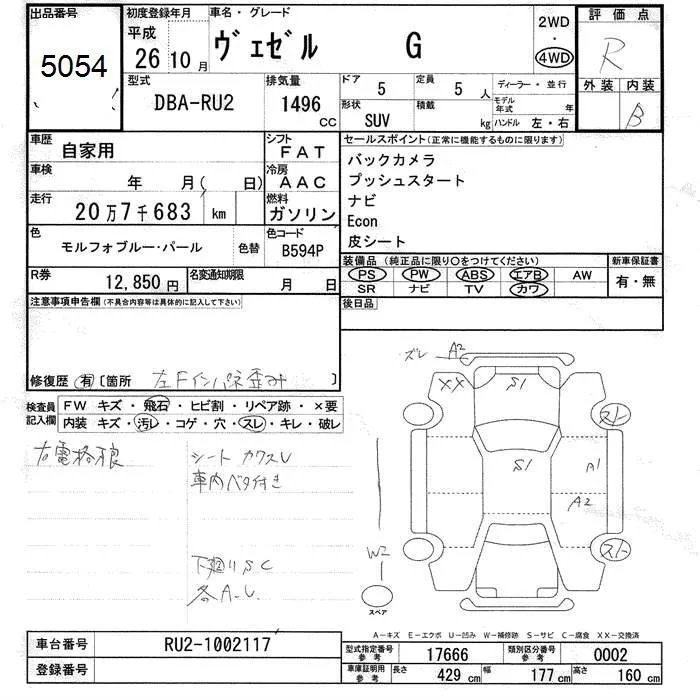 出品番号
5054
初度登録年月
平成
26 10 月
車名・グレード
ヴェゼル G
2WD
・
4WD
評価点
R
外装 内装
B
型式
DBA-RU2
排気量
1496 CC
ドア 5
定員 5 人
形状 SUV
積載 kg
ディーラー・並行
モデル年式 年
ハンドル 左・右
車歴
自家用
シフト
FAT
車検
年 月( 日)
冷房
AAC
走行
20 万 7 千 683 km
燃料
ガソリン
色
モルフォブルー・パール
色替
色コード
B594P
R券 12,850 円
名変通知期限 月 日
セールスポイント(正常に機能するものに限ります)
バックカメラ
プッシュスタート
ナビ
Econ
皮シート
装備品(純正品に限り○をつけてください)
新車保証書
PS PW ABS エアB AW
SR ナビ TV カワ
有・無
後日品
注意事項申告欄(不具合内容等は具体的に記入して下さい)
修復歴 有 〔箇所 左Fインパネ歪み 〕
検査員
記入欄
FW キズ・飛石・ヒビ割・リペア跡・×要
内装 キズ・汚レ・コゲ・穴・スレ・キレ・破レ
右電格狼
シート カワスレ
車内ベタ付き
下廻りSC
各A-U
ズレ A2
XX
S1
スレ
S1
A1
A2
W2
スレ
スペア
A-キズ E-エクボ U-凹み W-補修跡 S-サビ C-腐食 XX-交換済
車台番号 RU2-1002117
登録番号
型式指定番号 参考 17666
類別区分番号 参考 0002
車庫証明用 参考
長さ 429 cm
幅 177 cm
高さ 160 cm